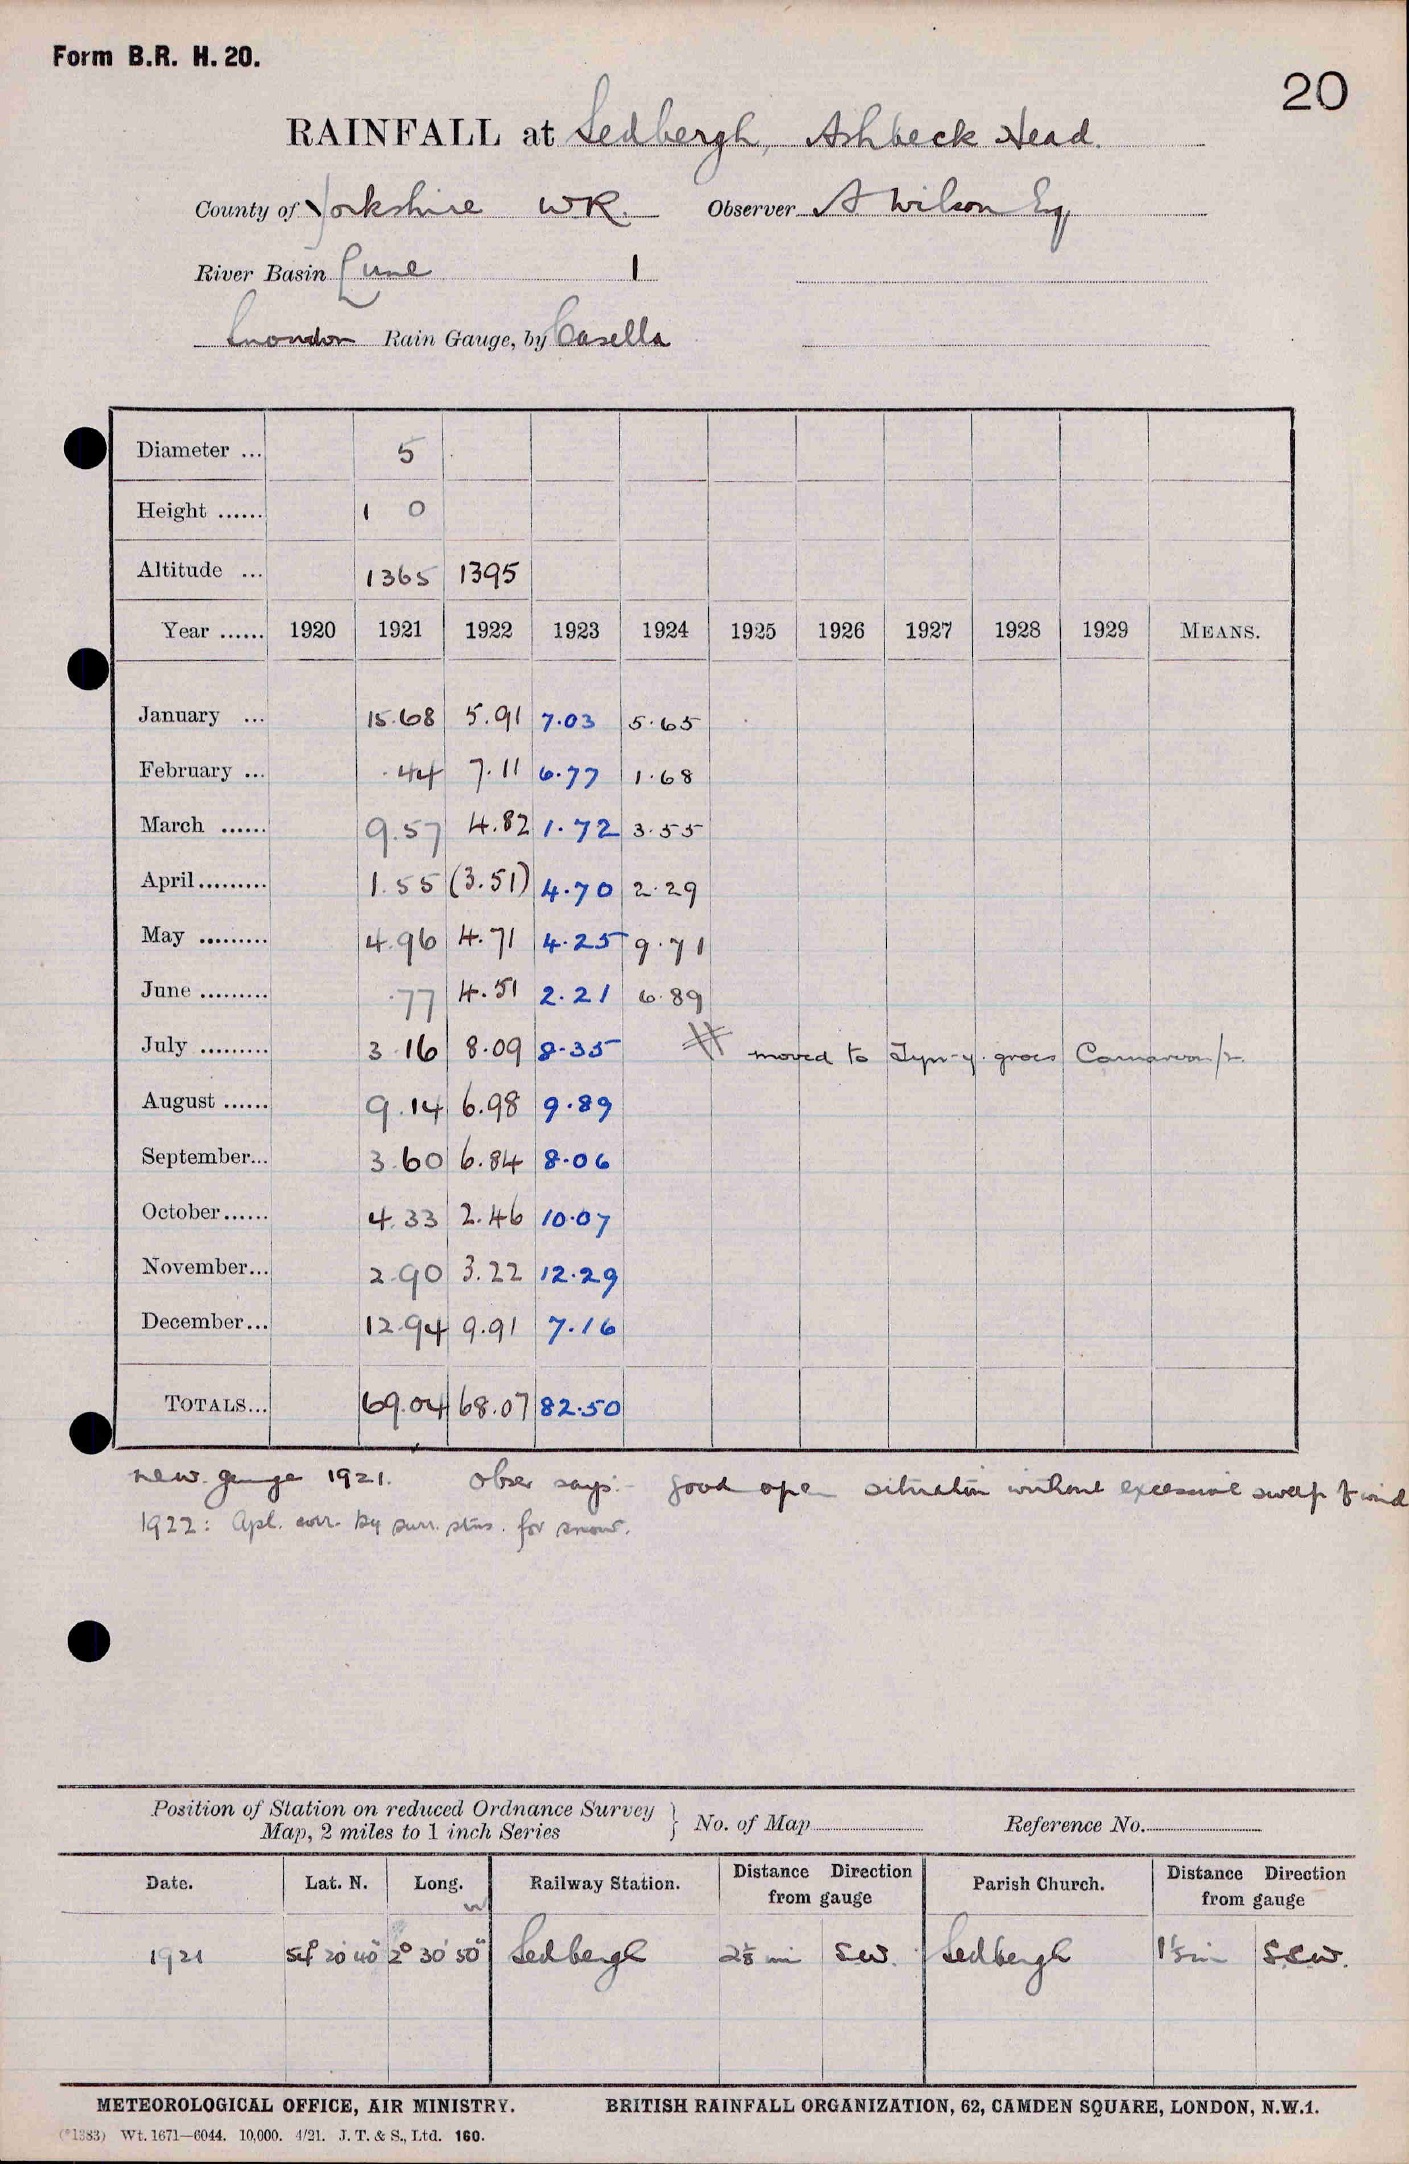 Form B.R. H. 20.
20
RAINFALL at Sedbergh, Ashbeck Head.
County of Yorkshire WR. Observer A Wilson Esq
River Basin Lune 1
Snowdon Rain Gauge, by Casella
Diameter ... 5
Height ...... 1 0
Altitude ... 1365 1395
Year ...... 1920 1921 1922 1923 1924 1925 1926 1927 1928 1929 MEANS.
January ... 15.68 5.91 7.03 5.65
February ... .44 7.11 6.77 1.68
March ...... 9.57 4.82 1.72 3.55
April......... 1.55 (3.51) 4.70 2.29
May ......... 4.96 4.71 4.25 9.71
June ......... .77 4.51 2.21 6.89
July ......... 3.16 8.09 8.35 moved to Tyn-y-groes Carnarvon
August ...... 9.14 6.98 9.89
September... 3.60 6.84 8.06
October...... 4.33 2.46 10.07
November... 2.90 3.22 12.29
December... 12.94 9.91 7.16
TOTALS... 69.04 68.07 82.50
new gauge 1921. Obser says:- good open situation without excessive sweep of wind
1922: Apl. corr. by surr. stns. for snow.
Position of Station on reduced Ordnance Survey
Map, 2 miles to 1 inch Series } No. of Map Reference No.
Date. Lat. N. Long. W Railway Station. Distance Direction from gauge Parish Church. Distance Direction from gauge
1921 54° 20' 40" 2° 30' 50" Sedbergh mi S.W. Sedbergh S.S.W.
METEOROLOGICAL OFFICE, AIR MINISTRY. BRITISH RAINFALL ORGANIZATION, 62, CAMDEN SQUARE, LONDON, N.W.1.
(*1383) Wt. 1671—6044. 10,000. 4/21. J. T. & S., Ltd. 160.